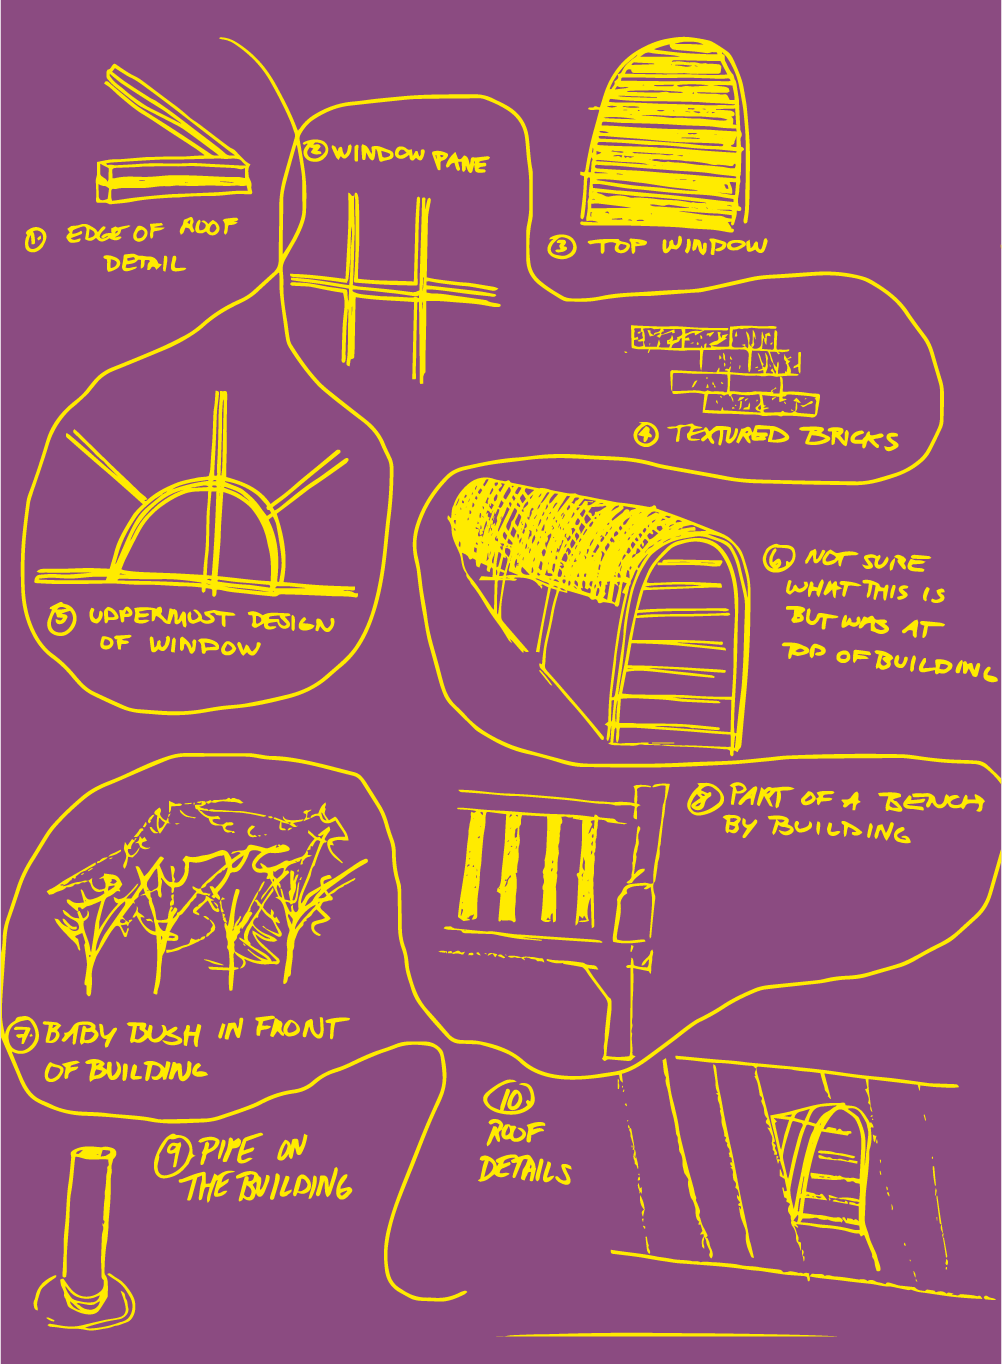 1. EDGE OF ROOF
DETAIL
2 WINDOW PANE
3 TOP WINDOW
4 TEXTURED BRICKS
5 UPPERMOST DESIGN
OF WINDOW
6 NOT SURE
WHAT THIS IS
BUT WAS AT
TOP OF BUILDING
7. BABY BUSH IN FRONT
OF BUILDING
8 PART OF A BENCH
BY BUILDING
9 PIPE ON
THE BUILDING
10
ROOF
DETAILS